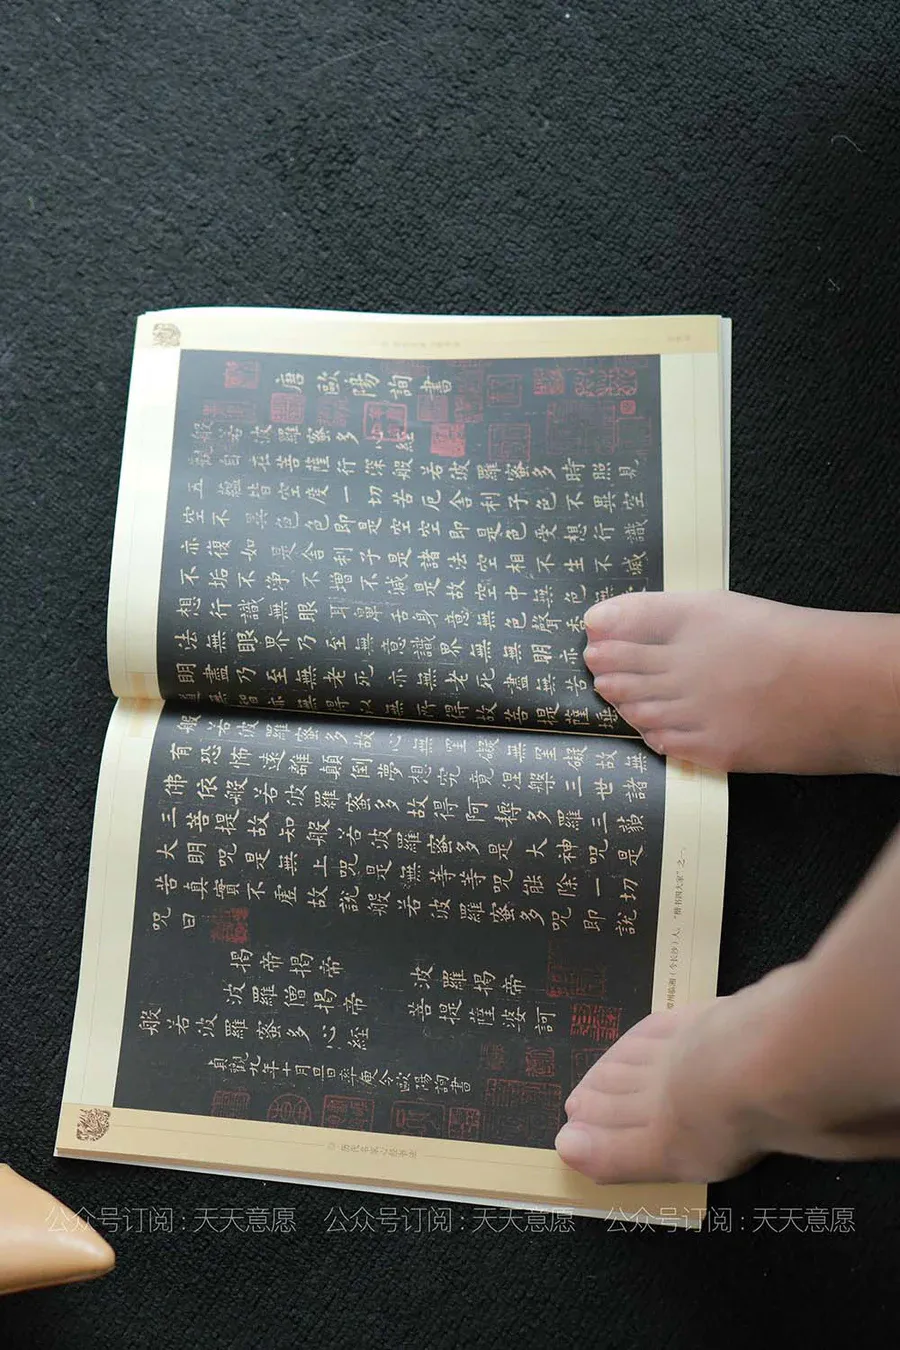 唐歐陽詢書
般若波羅蜜多心經
觀自在菩薩行深般若波羅蜜多時照見
五蘊皆空度一切苦厄舍利子色不異空
空不異色色即是空空即是色受想行識
亦復如是舍利子是諸法空相不生不滅
不垢不淨不增不減是故空中無色無
想行識無眼耳鼻舌身意無色聲香
法無眼界乃至無意識界無無明亦
明盡乃至無老死亦無老死盡無苦
無智亦無得以無所得故菩提薩埵
般若波羅蜜多故心無罣礙無罣礙故無
有恐怖遠離顛倒夢想究竟涅槃三世諸
佛依般若波羅蜜多故得阿耨多羅三藐
三菩提故知般若波羅蜜多是大神咒是
大明咒是無上咒是無等等咒能除一切
苦真實不虛故說般若波羅蜜多咒即說
咒曰
揭帝揭帝 波羅揭帝
波羅僧揭帝 菩提薩婆訶
般若波羅蜜多心經
貞觀九年十月旦日率更令歐陽詢書
潭州临湘（今长沙）人。“楷书四大家”之一。
公众号订阅：天天意愿 公众号订阅：天天意愿 公众号订阅：天天意愿